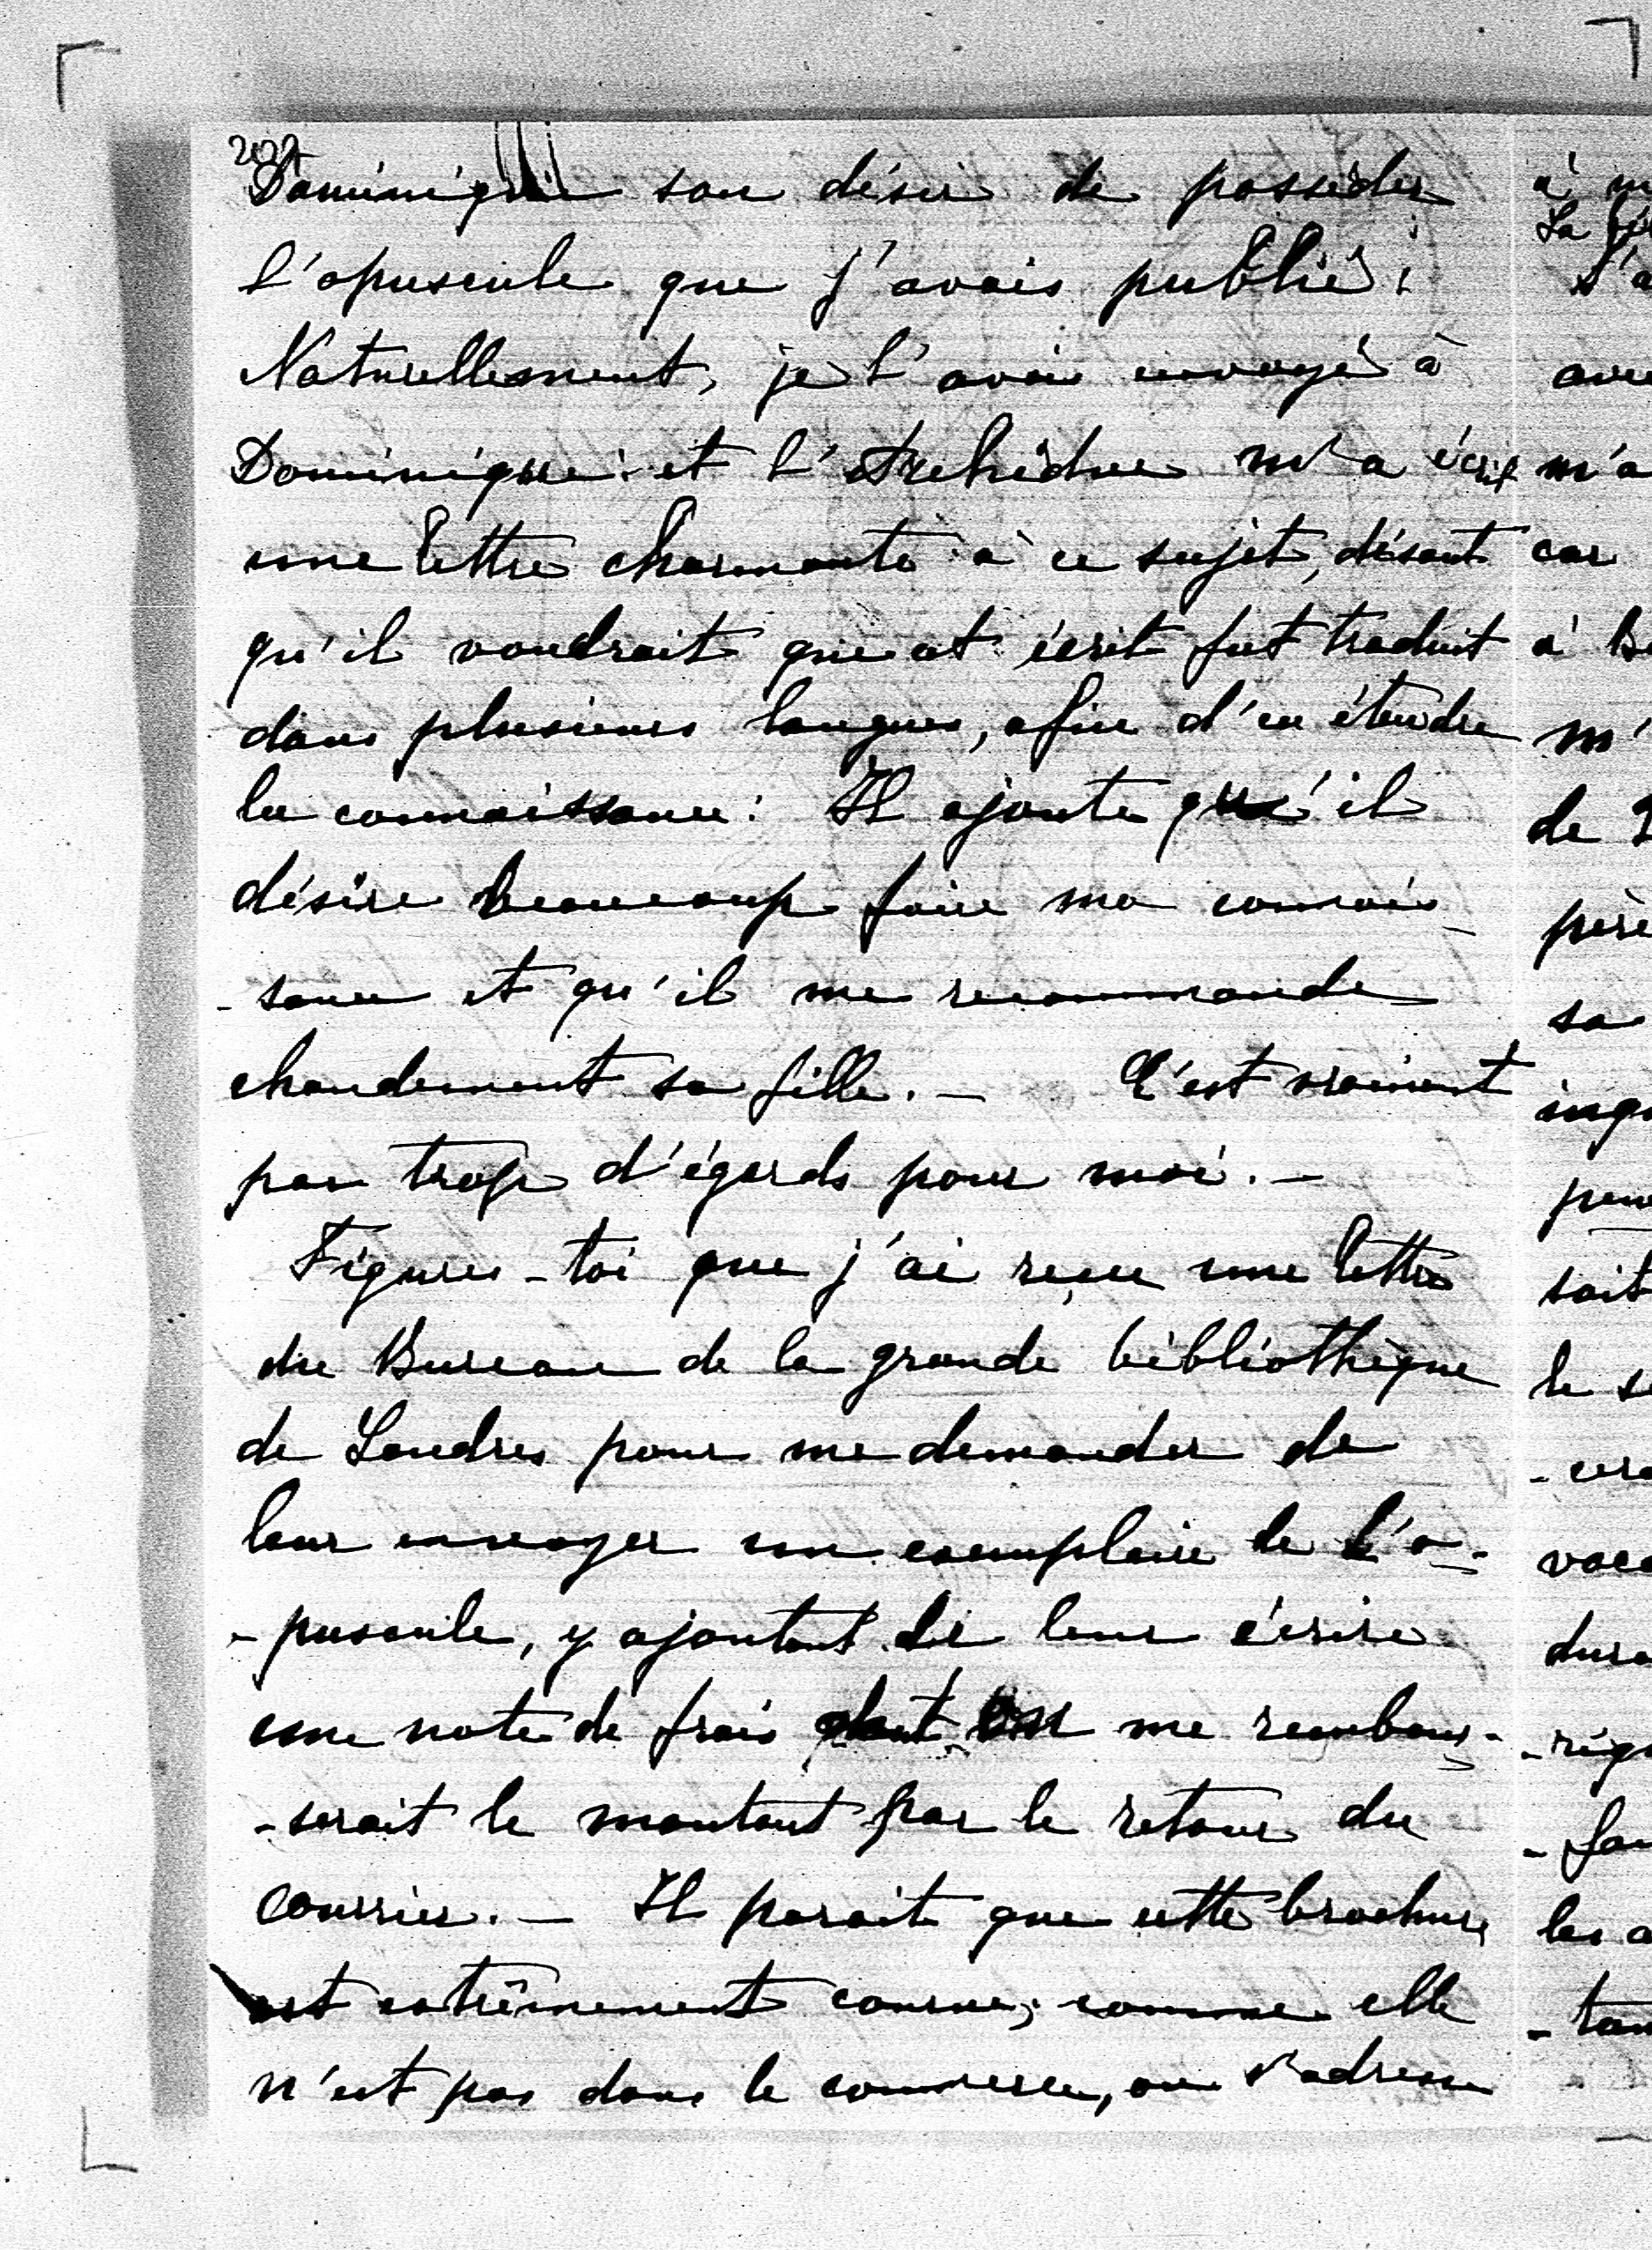 Dominique son désir de posséder
l'opuscule que j'avais publié:
Naturellement, je l'avais envoyé à
Dominique: et l'Archiduc m'a écrit
une lettre charmante à ce sujet, disant
qu'il voudrait que cet écrit fut traduit
dans plusieurs langues, afin d'en étendre
la connaissance: Il ajoute qu'il
désire beaucoup faire ma connais-
-sance et qu'il me recommande
chaudement sa fille. — C'est vraiment
par trop d'égards pour moi. —
Figures-toi que j'ai reçu une lettre
du Bureau de la grande bibliothèque
de Londres pour me demander de
leur envoyer un exemplaire de l'o-
-puscule, y ajoutant de leur écrire
une note de frais dont on me rembour-
-serait le montant par le retour du
courrier. — Il parait que cette brochure
est extrêmement connue; comme elle
n'est pas dans le commerce, on s'adresse
à
La
avec
m'a
car
à
m'
de
père
sa
soit
le
les